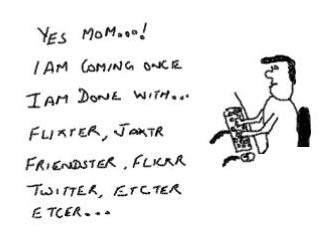 YES MOM...!
I AM COMING ONCE
I AM DONE WITH...
FLIXTER, JAXTR
FRIENDSTER, FLICKR
TWITTER, ETCTER
ETCER...